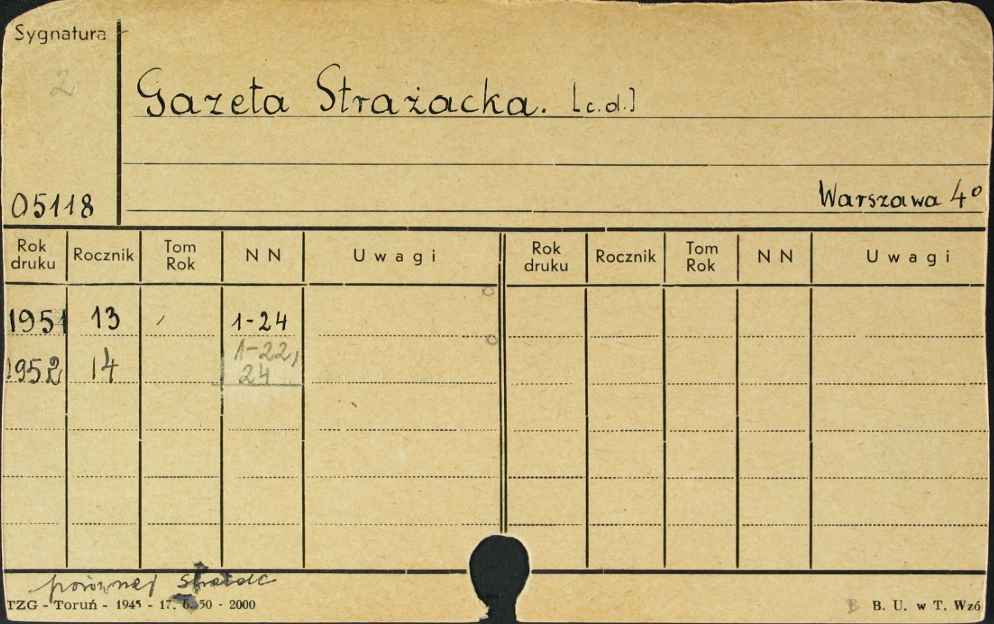 Sygnatura
2
Gazeta Strażacka. [c.d.]
05118
Warszawa 4º
Rok druku Rocznik Tom Rok N N Uwagi Rok druku Rocznik Tom Rok N N Uwagi
1951 13 1-24
1952 14 1-22, 24
porównaj
TZG - Toruń - 1945 - 17. 6. 50 - 2000
B. U. w T. Wzó